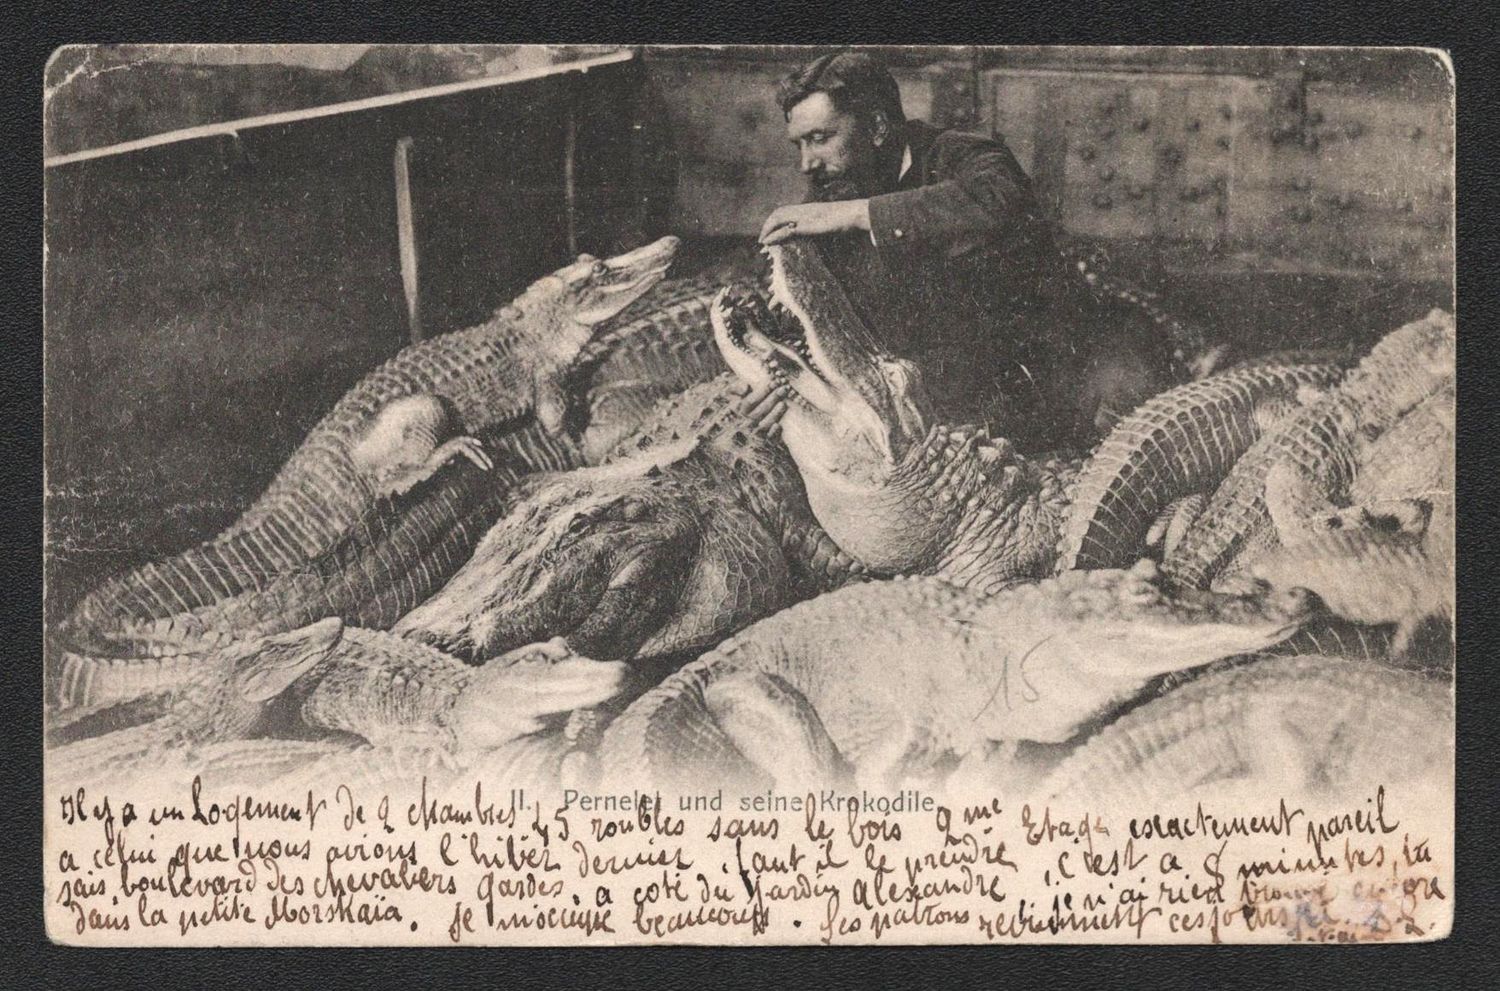 15
II. Pernelet und seine Krokodile.
Il y a un Logement de 2 chambres 45 roubles sans le bois 2me Etage exactement pareil
a celui que nous avions l'hiver dernier, faut il le prendre, c'est a 8 minutes, tu
sais boulevard des chevaliers gardes, a coté du Jardin Alexandre, je n'ai rien trouvé encore
dans la petite Morskaïa. Je m'occupe beaucoup. Les patrons reviennent ces jours